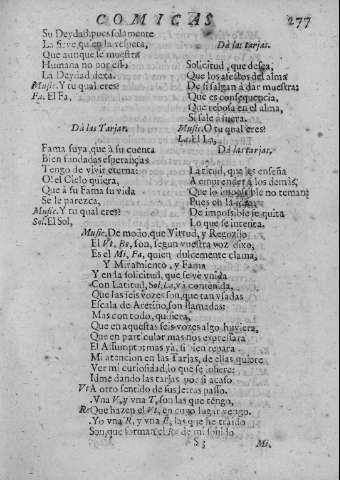 COMICAS
277
Su Deydad, pues solamente
La sirve quien la respeta,
Que aunque se muestra
Humana no por esso
La Deydad dexa.
Music. Y tu qual eres?
Fa. El Fa,
Dà las Tarjas.
Fama suya, que à su cuenta
Bien fundadas esperanças
Tengo de vivir eterna:
O! el Cielo quiera,
Que à su Fama su vida
Se le parezca,
Music. Y tu qual eres?
Sol. El Sol,
Dà las tarjas.
Solicitud, que desea,
Que los afectos del alma
De si salgan à dar muestra:
Que es consequencia,
Que rebosa en el alma,
Si sale afuera.
Music. O tu qual eres?
La. El La,
Dà las tarjas.
Latitud, que les enseña
A emprender à los demàs,
Que lo impossible no teman:
Pues en la
De impossible se quita
Lo que se intenta.
Music. De modo, que Virtud, y Regozijo
El Vt, Re, son, segun vuestra voz dixo,
Es el Mi, Fa, quien dulcemente clama,
Y Miramiento, y Fama
Y en la solicitud, que se ve vnida
Con Latitud, Sol, La, và contenida,
Que las seis vozes son, que tan vsadas
Escala de Aretino, son llamadas:
Mas con todo, quisiera,
Que en aquestas seis vozes algo huviera,
Que en particular mas nos expressara
El Assumpto; mas ya, si bien repara
Mi atencion en las Tarjas, de ellas quiere
Ver mi curiosidad, lo que se infiere:
Idme dando las tarjas por si acaso
Vt A otro sentido de sus letras passo.
Vna V, y vna T, son las que tengo,
Re Que hazen el Vt, en cuyo lugar vengo.
Yo vna R, y vna E, las que he traìdo
Son, que forman el Re de mi sonido
S 3
Mi.